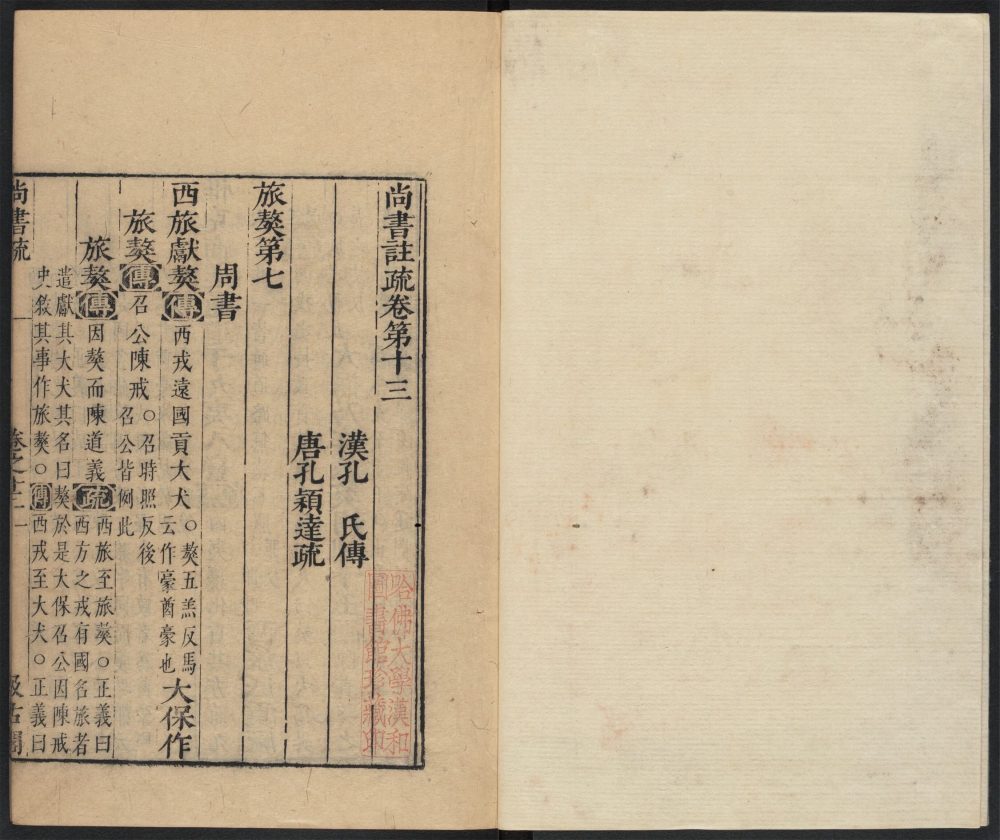 尚書註疏卷第十三
漢孔　氏傳
唐孔穎達疏
旅獒第七
周書
西旅獻獒傳西戎遠國貢大犬○獒五羔反馬云作豪酋豪也大保作
旅獒傳召公陳戒○召時照反後召公皆倣此
旅獒傳因獒而陳道義疏西旅至旅獒○正義曰西方之戎有國名旅者
遣獻其大犬其名曰獒於是大保召公因陳戒
史敘其事作旅獒○傳西戎至大犬○正義曰
尚書疏　卷之十三　一　汲古閣
哈佛大學漢和
圖書館珍藏印